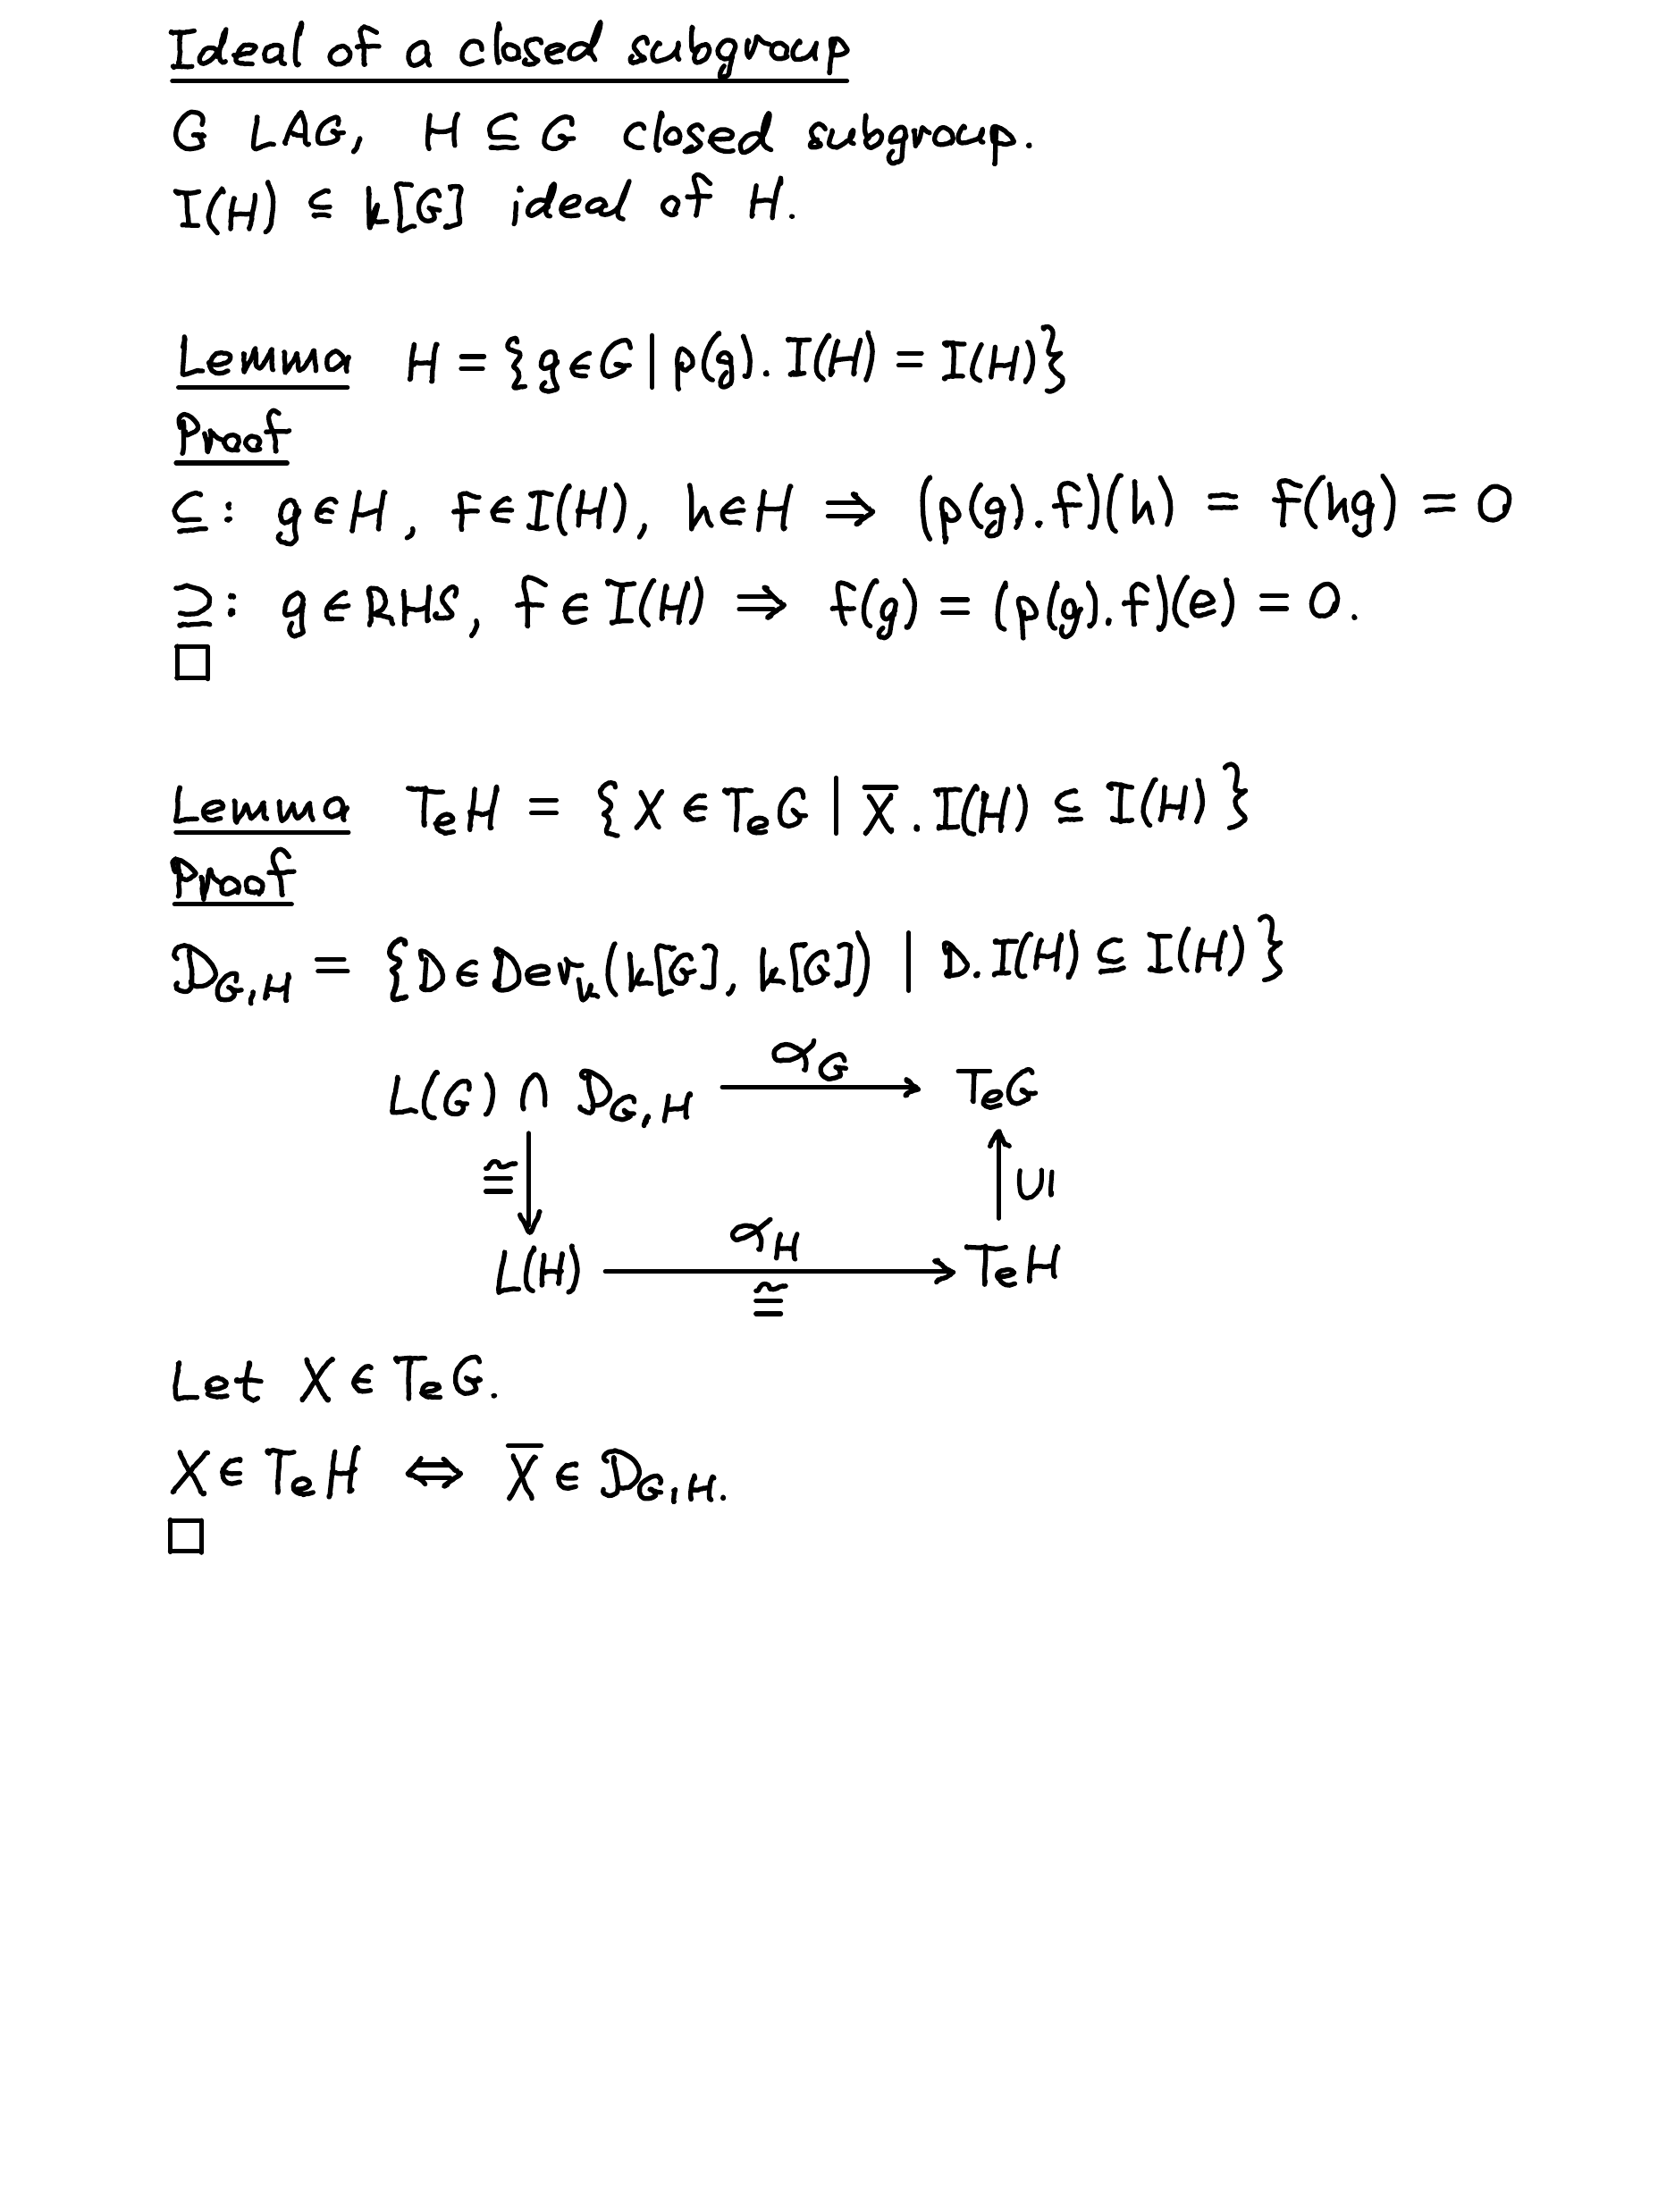 Ideal of a closed subgroup
G LAG, H ⊆ G closed subgroup.
I(H) ⊆ k[G] ideal of H.
Lemma H = {g ∈ G | ρ(g). I(H) = I(H)}
Proof
⊆: g ∈ H, f ∈ I(H), h ∈ H ⇒ (ρ(g).f)(h) = f(hg) = 0
⊇: g ∈ RHS, f ∈ I(H) ⇒ f(g) = (ρ(g).f)(e) = 0.
□
Lemma TₑH = {X ∈ TₑG | X̅. I(H) ⊆ I(H)}
Proof
𝒟_{G,H} = {D ∈ Der_k(k[G], k[G]) | D. I(H) ⊆ I(H)}
α_G
L(G) ∩ 𝒟_{G,H} → TₑG
≅ ↓ ↑ U|
α_H
L(H) → TₑH
≅
Let X ∈ TₑG.
X ∈ TₑH ⇔ X̅ ∈ 𝒟_{G,H}.
□